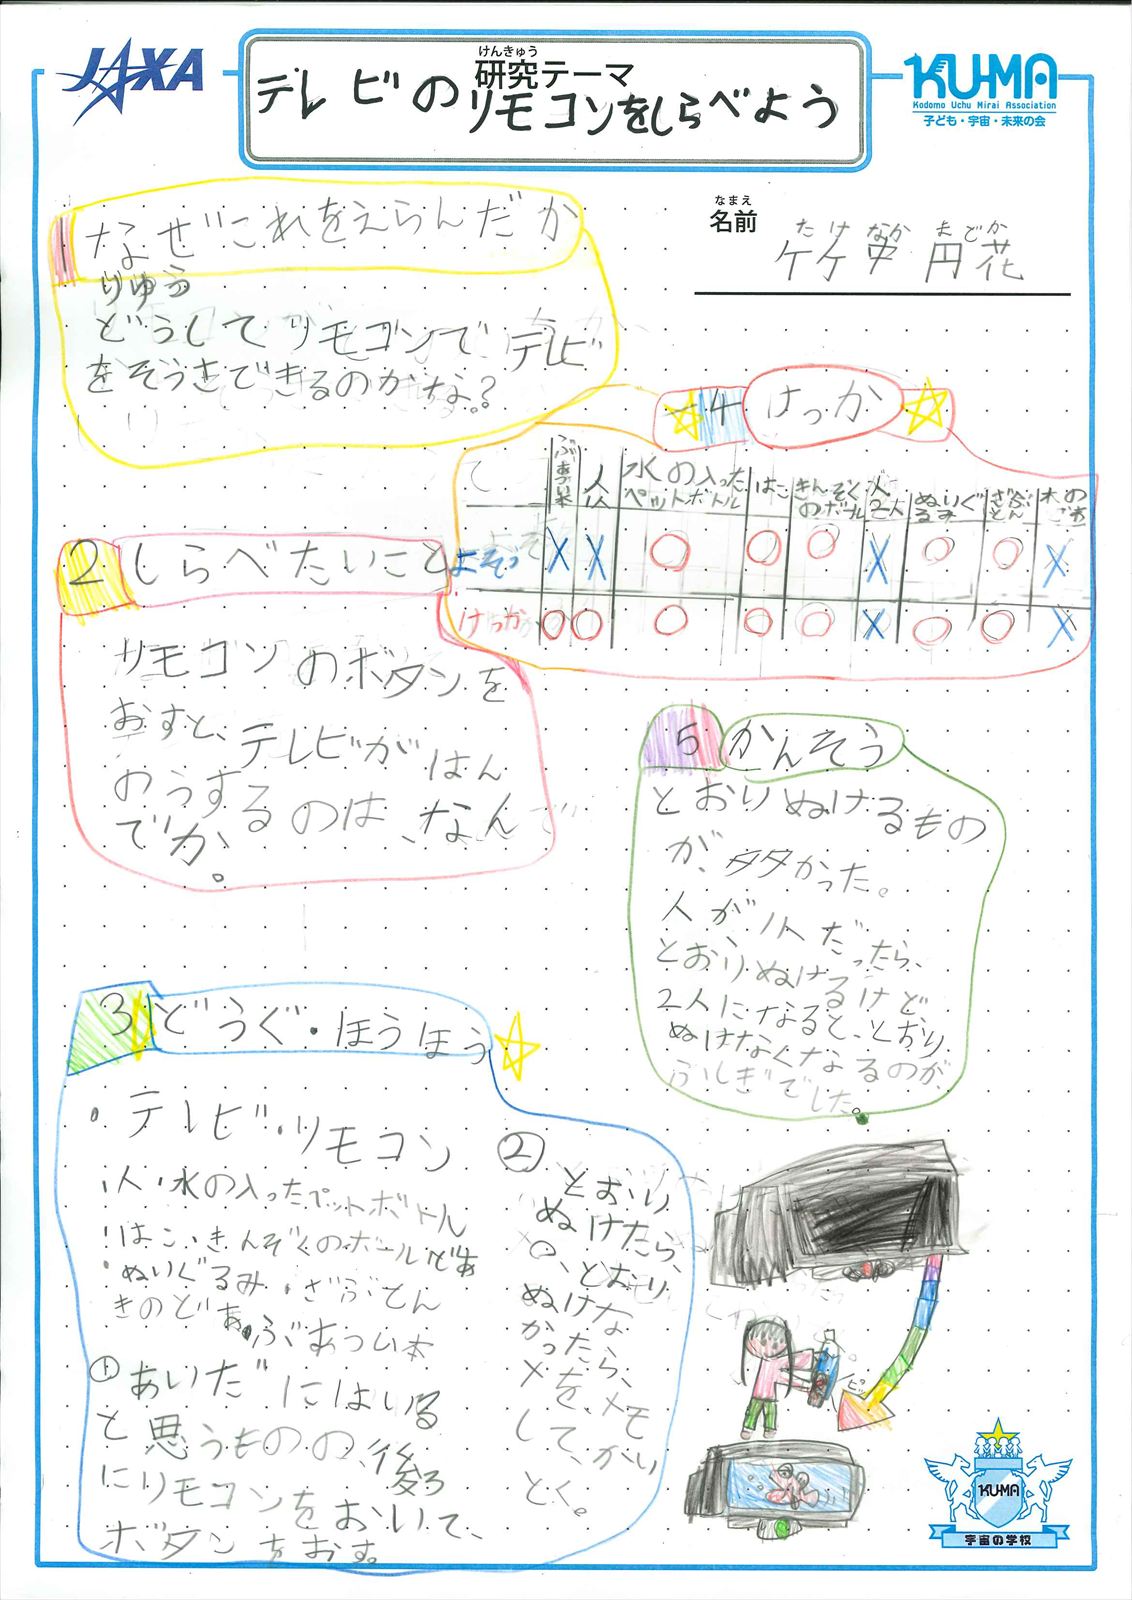 JAXA
けんきゅう
研究テーマ
テレビのリモコンをしらべよう
KU-MA
Kodomo Uchu Mirai Association
子ども・宇宙・未来の会
なまえ
名前
たけなか まどか
竹中 円花
1 なぜこれをえらんだか
りゆう
どうしてリモコンでテレビ
をそうさできるのかな?
2 しらべたいこと
リモコンのボタンを
おすと、テレビがはん
のうするのは、なん
でか。
3 どうぐ・ほうほう
・テレビ・リモコン
・人・水の入ったペットボトル
・はこ・きんぞくのボール
・ぬいぐるみ・ざぶとん
・ぶあつい本
①あいだにはいる
と思うものの、後ろ
にリモコンをおいて、
ボタンをおす。
②とおり
ぬけたら、
○、とおり
ぬけな
かったら、
×を、メモ
して、かい
とく。
4 けっか
ぶあつい本 人1人 水の入ったペットボトル はこ きんぞくのボール 人2人 ぬいぐるみ ざぶとん 木の
よそう × × ○ ○ ○ × ○ ○ ×
けっか ○ ○ ○ ○ ○ × ○ ○ ×
5 かんそう
とおりぬけるもの
が、多かった。
人が1人だったら、
とおりぬけるけど、
2人になると、とおり
ぬけなくなるのが、
ふしぎでした。
ピッ
KU-MA
宇宙の学校